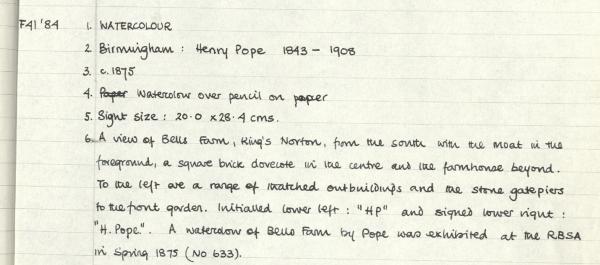 F41'84 1. WATERCOLOUR
2. Birmingham : Henry Pope 1843 - 1908
3. c.1875
4. Paper Watercolour over pencil on paper
5. Sight size : 20.0 x 28.4 cms.
6. A view of Bells Farm, King's Norton, from the south with the moat in the
foreground, a square brick dovecote in the centre and the farmhouse beyond.
To the left are a range of thatched outbuildings and the stone gatepiers
to the front garden. Initialled lower left : "HP" and signed lower right :
"H. Pope". A watercolour of Bells Farm by Pope was exhibited at the RBSA
in Spring 1875 (No 633).